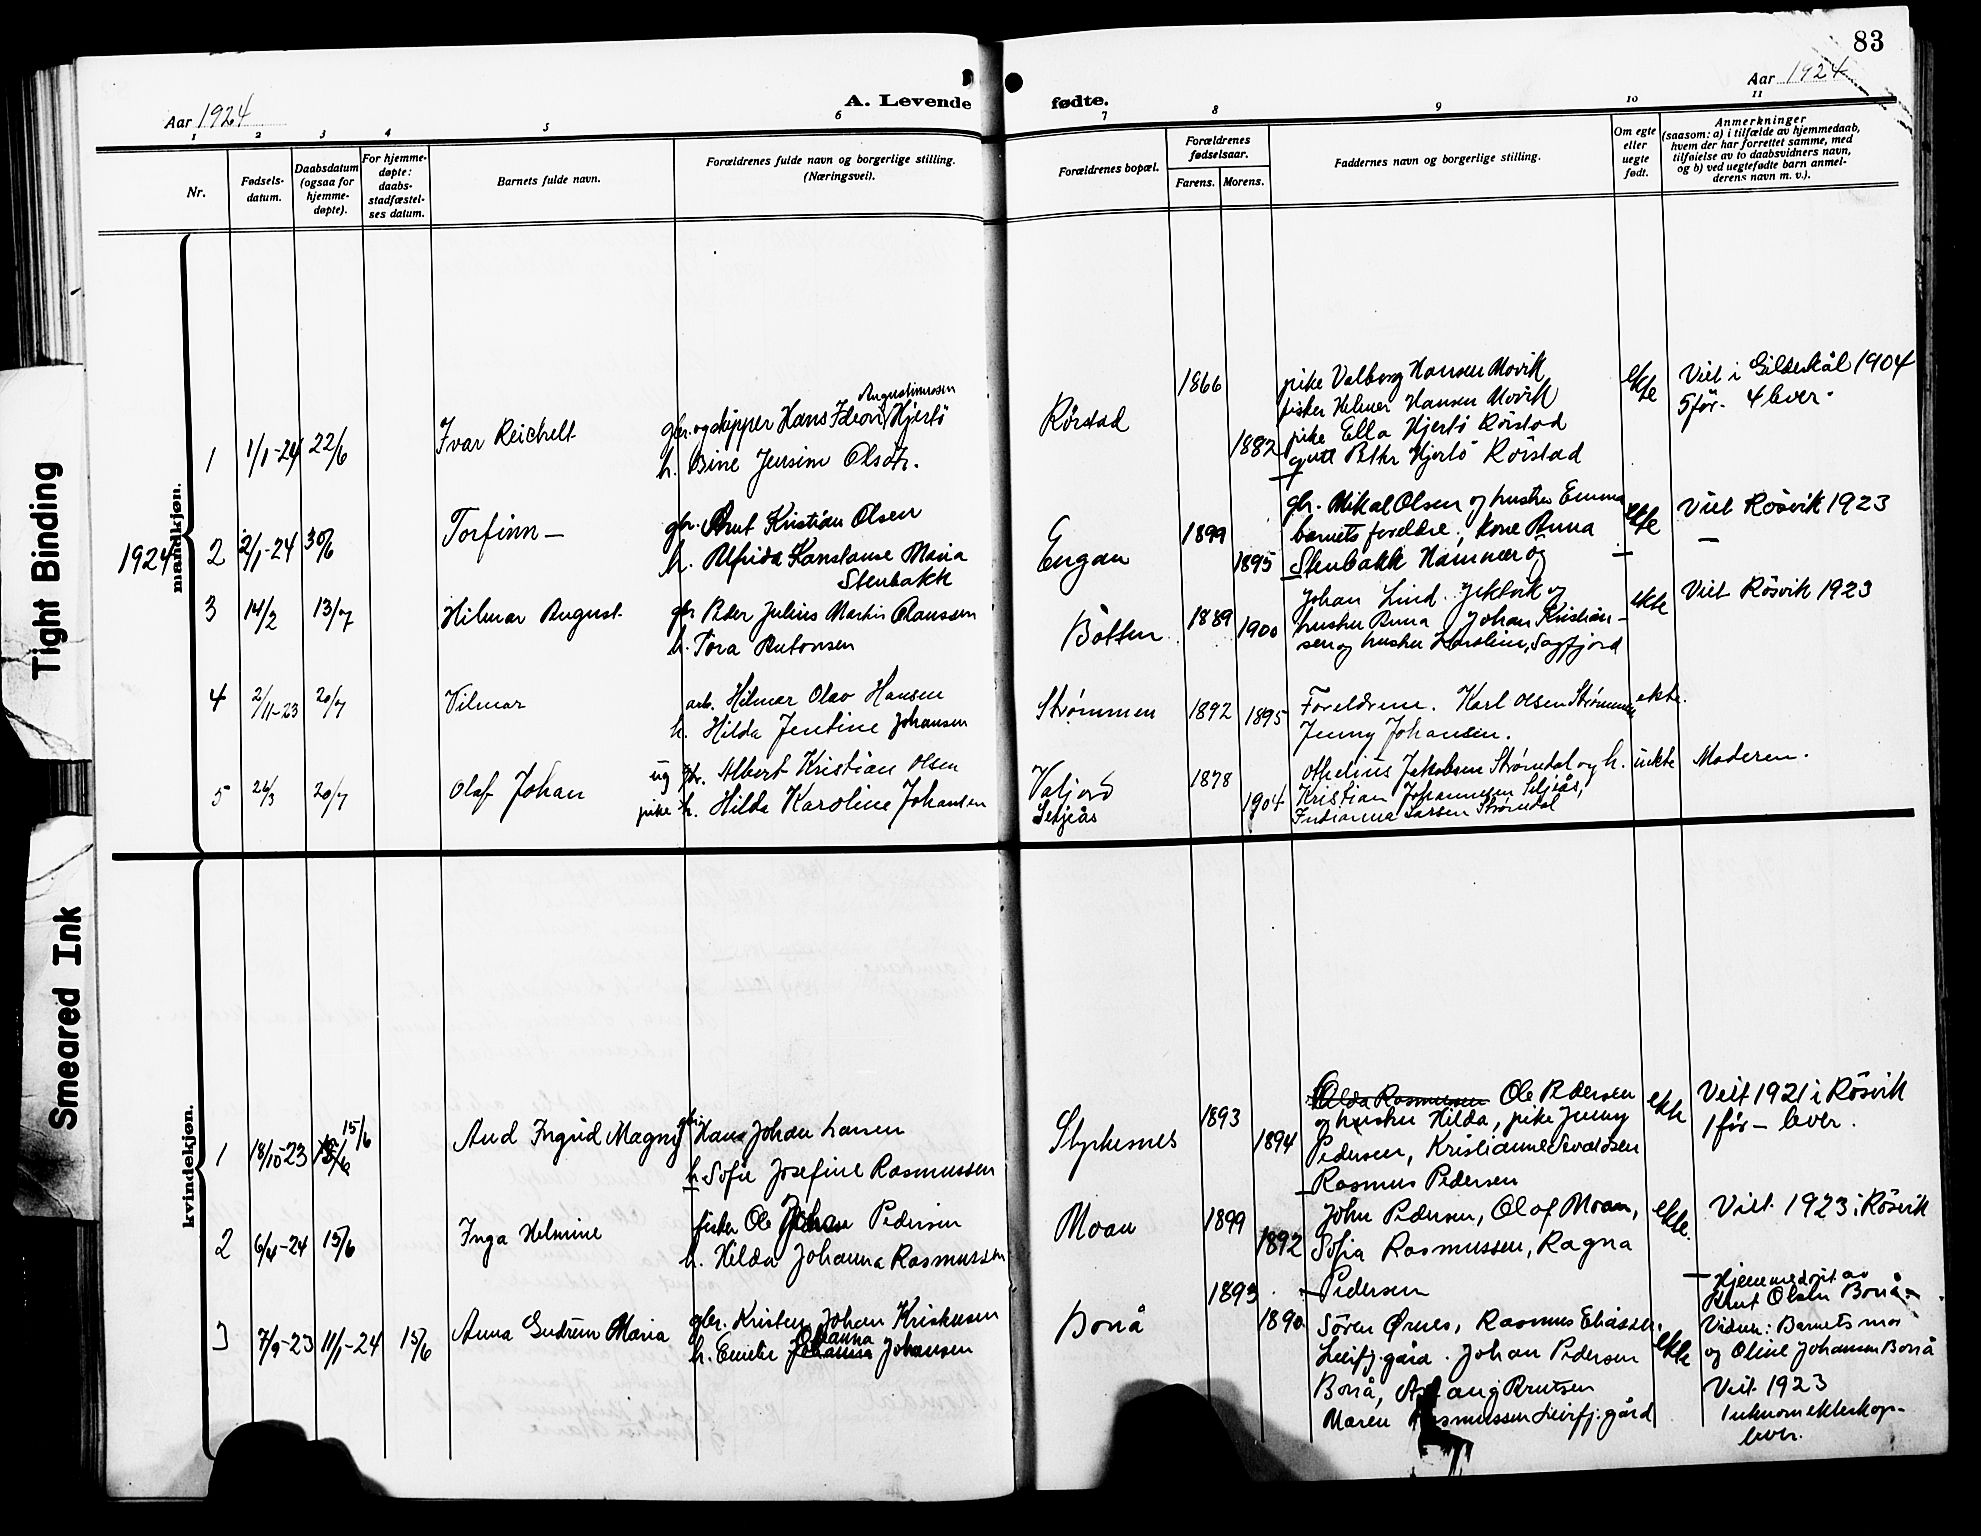 83
Aar 1924
A. Levende
fødte.
Aar 1924
1 2 3 4 5 6 7 8 9 10 11
Nr.
Fødsels-
datum.
Daabsdatum
(ogsaa for
hjemme-
døpte).
For hjemme-
døpte:
daabs-
stadfæstel-
ses datum.
Barnets fulde navn.
Forældrenes fulde navn og borgerlige stilling.
(Næringsvei).
Forældrenes bopæl.
Forældrenes
fødselsaar.
Farens. Morens.
Faddernes navn og borgerlige stilling.
Om egte
eller
uegte
født.
Anmerkninger
(saasom: a) i tilfælde av hjemmedaab,
hvem der har forrettet samme, med
tilføielse av to daabsvidners navn,
og b) ved uegtefødte barn anmel-
derens navn m. v.).
Tight Binding
Smeared Ink
1924
mandkjøn.
1 1/1-24 22/6 Ivar Reichelt
gbr. og skipper Hans Ideon Hjertö
h. Bine Jensine Olsdtr.
Rörstad 1866 1882
pike Valborg Hansen Movik
fisker Helmer Hansen Movik
pike Ella Hjertö Rörstad
gutt Petter Hjertö Rörstad
ekte
Viet i Gildeskål 1904
5 før. 4 lever.
2 2/1-24 30/6 Torfinn —
gbr. Knut Kristian Olsen
h. Alfrida Konstanse Maria
Stenbakk
Engan 1899 1895
gbr. Mikal Olsen og hustru Emma
barnets foreldre, kone Anna
Stenbakk Hammer og
ekte
Viet Rösvik 1923
3 14/2 13/7 Hilmar August
gbr. Peder Julius Martin Clausen
h. Tora Antonsen
Botten 1889 1900
Johan Lind. Jektvik og
hustru Anna Johan Kristian-
sen og hustru Karoline, Sagfjord
ekte
Viet Røsvik 1923
4 2/11-23 20/7 Vilmar
arb. Hilmar Olav Hansen
h. Hilda Jentine Johansen
Strømmen 1892 1895
Foreldrene. Karl Olsen Strømmen
Jenny Johansen.
ekte.
5 26/3 20/7 Olaf Johan
ug gbr. Albert Kristian Olsen
pike h. Hilda Karoline Johansen
Valjord
Setjeås
1878 1904
Othelius Jakobsen Strømdal og h.
Kristian Johannesen Setjeås,
Indianna Larsen Strømdal
uekte
Moderen.
kvindekjøn.
1 18/10-23 15/6 Aud Ingrid Magny
gbr. Hans Johan Larsen
h. Sofie Josefine Rasmussen
Styrkesnes 1893 1894
Ole Pedersen
og hustru Hilda, pike Jenny
Pedersen, Kristianne Sevaldsen
Rasmus Pedersen
ekte
Veit 1921 i Rösvik
1 før — lever.
2 6/4-24 15/6 Inga Helmine
fisker Ole Johan Pedersen
h. Hilda Johanna Rasmussen
Moan 1899 1892
John Pedersen, Olaf Moan,
Sofia Rasmussen, Ragna
Pedersen
ekte.
Viet. 1923 i Rösvik
3 7/9-23 11/1-24 15/6 Anna Gudrun Maria
gbr. Kristen Johan Kristensen
h. Emelie Johanna Johansen
Bonå 1893 1890
Sören Ørnes, Rasmus Eliassen
Leirfj.gård. Johan Pedersen
Bonå, Aslaug Knutsen
Maren Rasmussen Leirfj.gård
ekte
Hjemmedøpt av
Knut Olsen Bonå.
Vidner: Barnets mor
og Oline Johansen Bonå
Veit. 1923
1 utenom ekteskap.
lever.